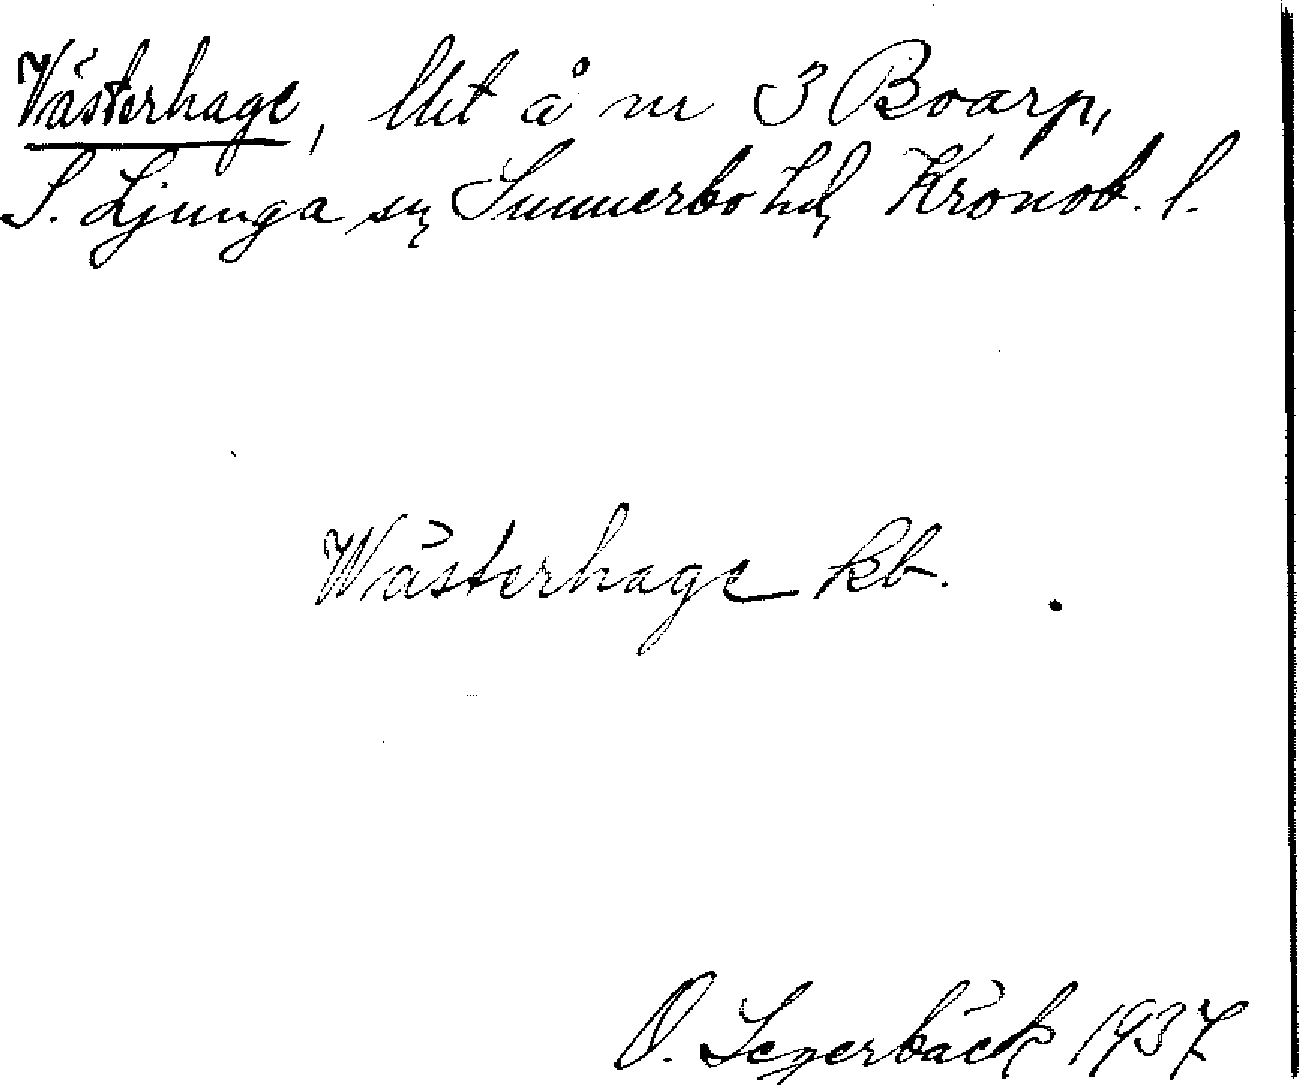 Västerhage, lht å nr 3 Boarp,
S. Ljunga sn Sunnerbo hd Kronob. l.
Wästerhage kb.
O. Segerbäck 1937